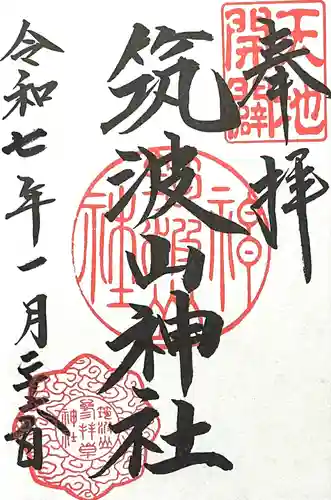 奉拝
天地
開闢
筑波山神社
筑波山
神社
令和七年一月二十六日
筑波山
参拝章
神社